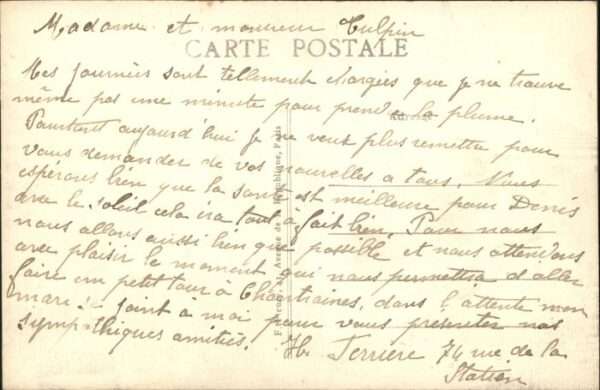 Madame et monsieur Tulpin
CARTE POSTALE
Mes journées sont tellement chargées que je ne trouve
même pas une minute pour prendre la plume.
Pourtant aujourd'hui je ne veux plus remettre pour
vous demander de vos nouvelles a tous. Nous
espérons bien que la santé est meilleure pour Denis
avec le soleil cela ira tout à fait bien. Pour nous
nous allons aussi bien que possible et nous attendons
avec plaisir le moment qui nous permettra d'aller
faire un petit tour à Chantraines, dans l'attente mon
mari se joint à moi pour vous présenter nos
sympathiques amitiés. H. Terriere 74 rue de la
Station
Avenue de la République, Paris